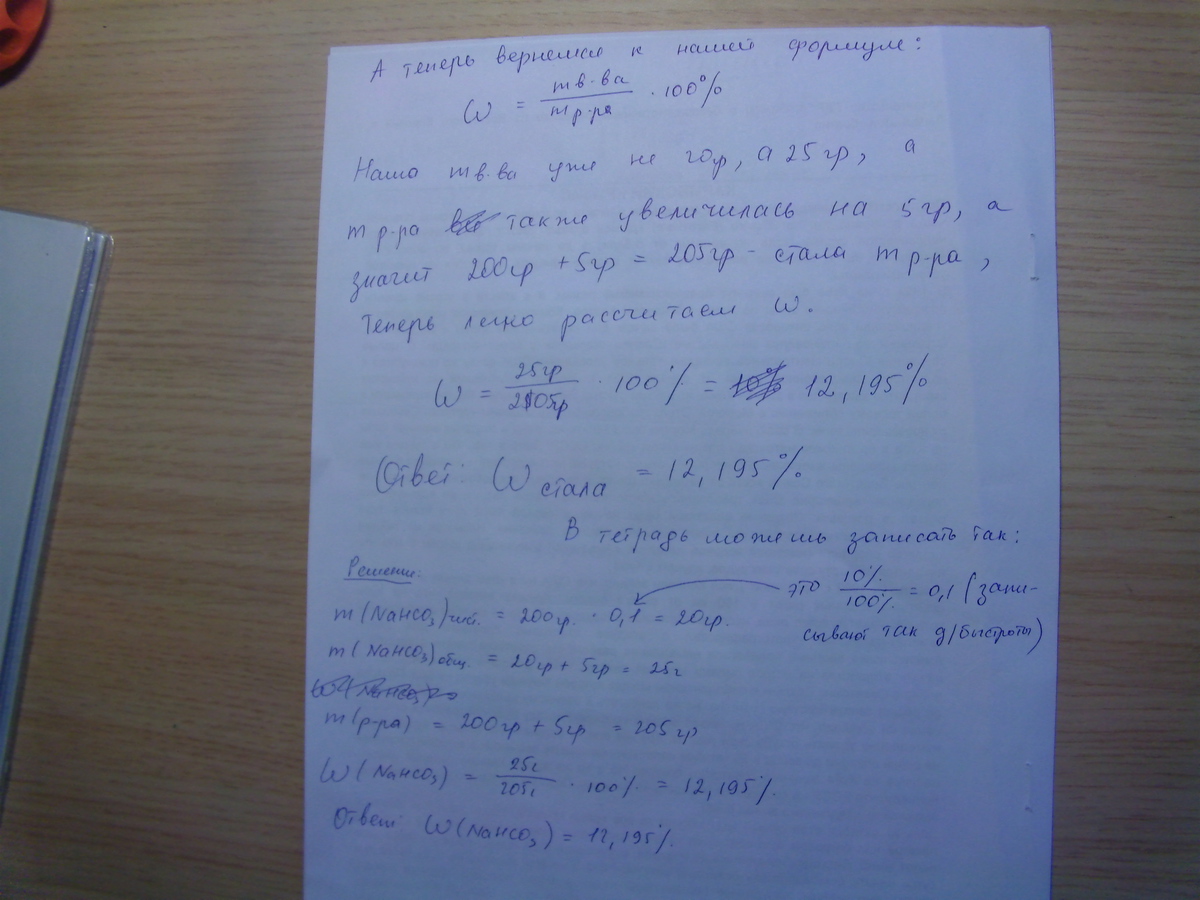 А теперь вернемся к нашей формуле:
W = m в-ва / m р-ра · 100%
Наша m в-ва уже не 20гр, а 25гр, а
m р-ра также увеличилась на 5гр, а
значит 200гр + 5гр = 205гр - стала m р-ра,
Теперь легко рассчитаем W.
W = 25гр / 205гр · 100% = 12,195%
Ответ: W стала = 12,195%
В тетрадь можешь записать так:
Решение:
это 10% / 100% = 0,1 (запи-
сывают так д/быстроты)
m(NaHCO3)чист. = 200гр. · 0,1 = 20гр.
m(NaHCO3)общ. = 20гр + 5гр = 25г
m(р-ра) = 200гр + 5гр = 205гр
W(NaHCO3) = 25г / 205г · 100% = 12,195%.
Ответ: W(NaHCO3) = 12,195%.